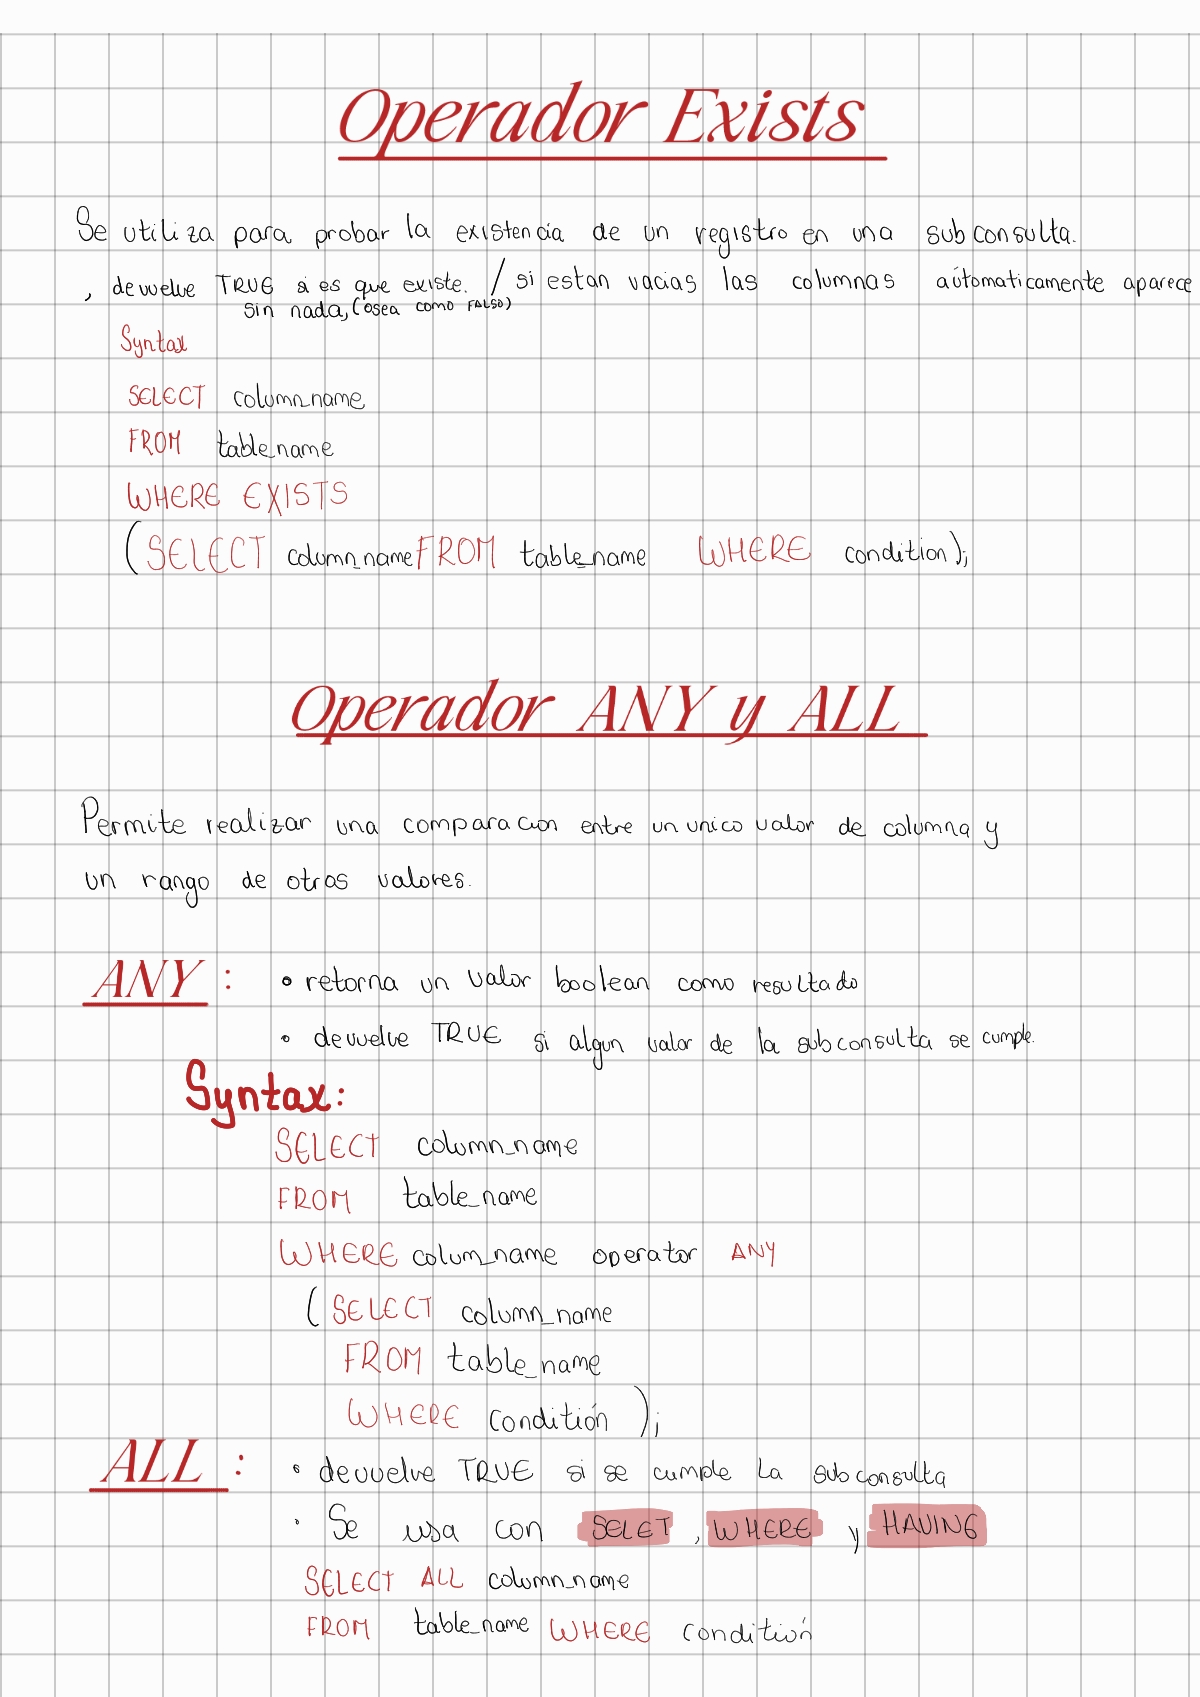 Operador Exists
Se utiliza para probar la existencia de un registro en una subconsulta.
, devuelve TRUE si es que existe. / si estan vacias las columnas automaticamente aparece
sin nada, (osea como FALSO)
Syntax
SELECT column_name
FROM table_name
WHERE EXISTS
(SELECT column_name FROM table_name WHERE condition);
Operador ANY y ALL
Permite realizar una comparacion entre un unico valor de columna y
un rango de otros valores.
ANY : • retorna un valor boolean como resultado
• devuelve TRUE si algun valor de la subconsulta se cumple.
Syntax:
SELECT column_name
FROM table_name
WHERE colum_name operator ANY
(SELECT column_name
FROM table_name
WHERE conditión );
ALL : • devuelve TRUE si se cumple la subconsulta
• Se usa con SELET , WHERE y HAVING
SELECT ALL column_name
FROM table_name WHERE conditión